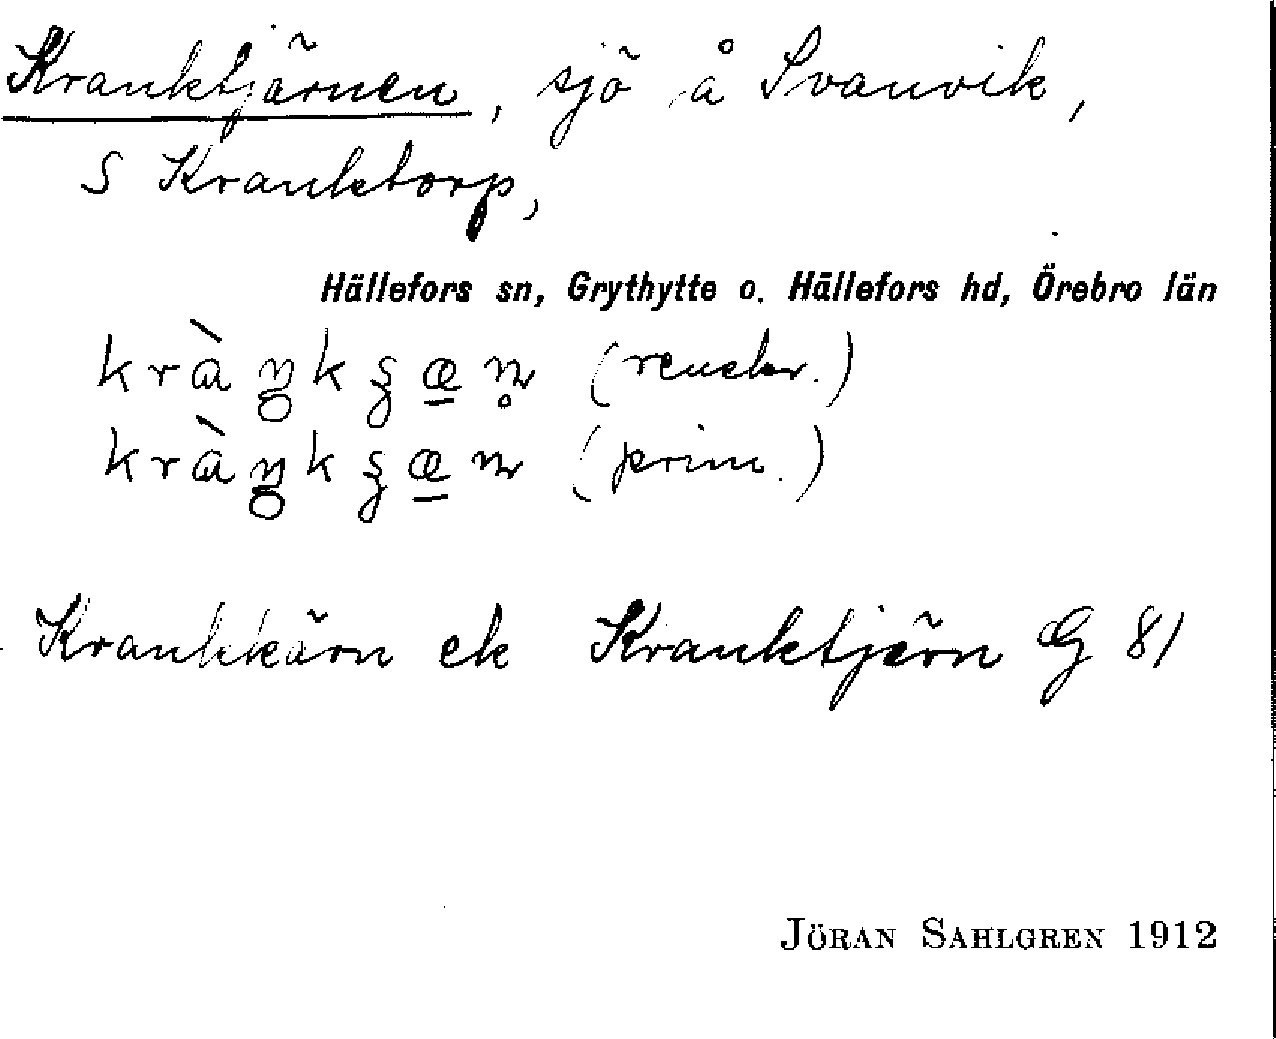 Kranktjärnen, sjö å Svanvik,
S Kranktorp,
Hällefors sn, Grythytte o. Hällefors hd, Örebro län
(renskr.)
(prim.)
Krankkärn ek Kranktjärn G 81
JÖRAN SAHLGREN 1912